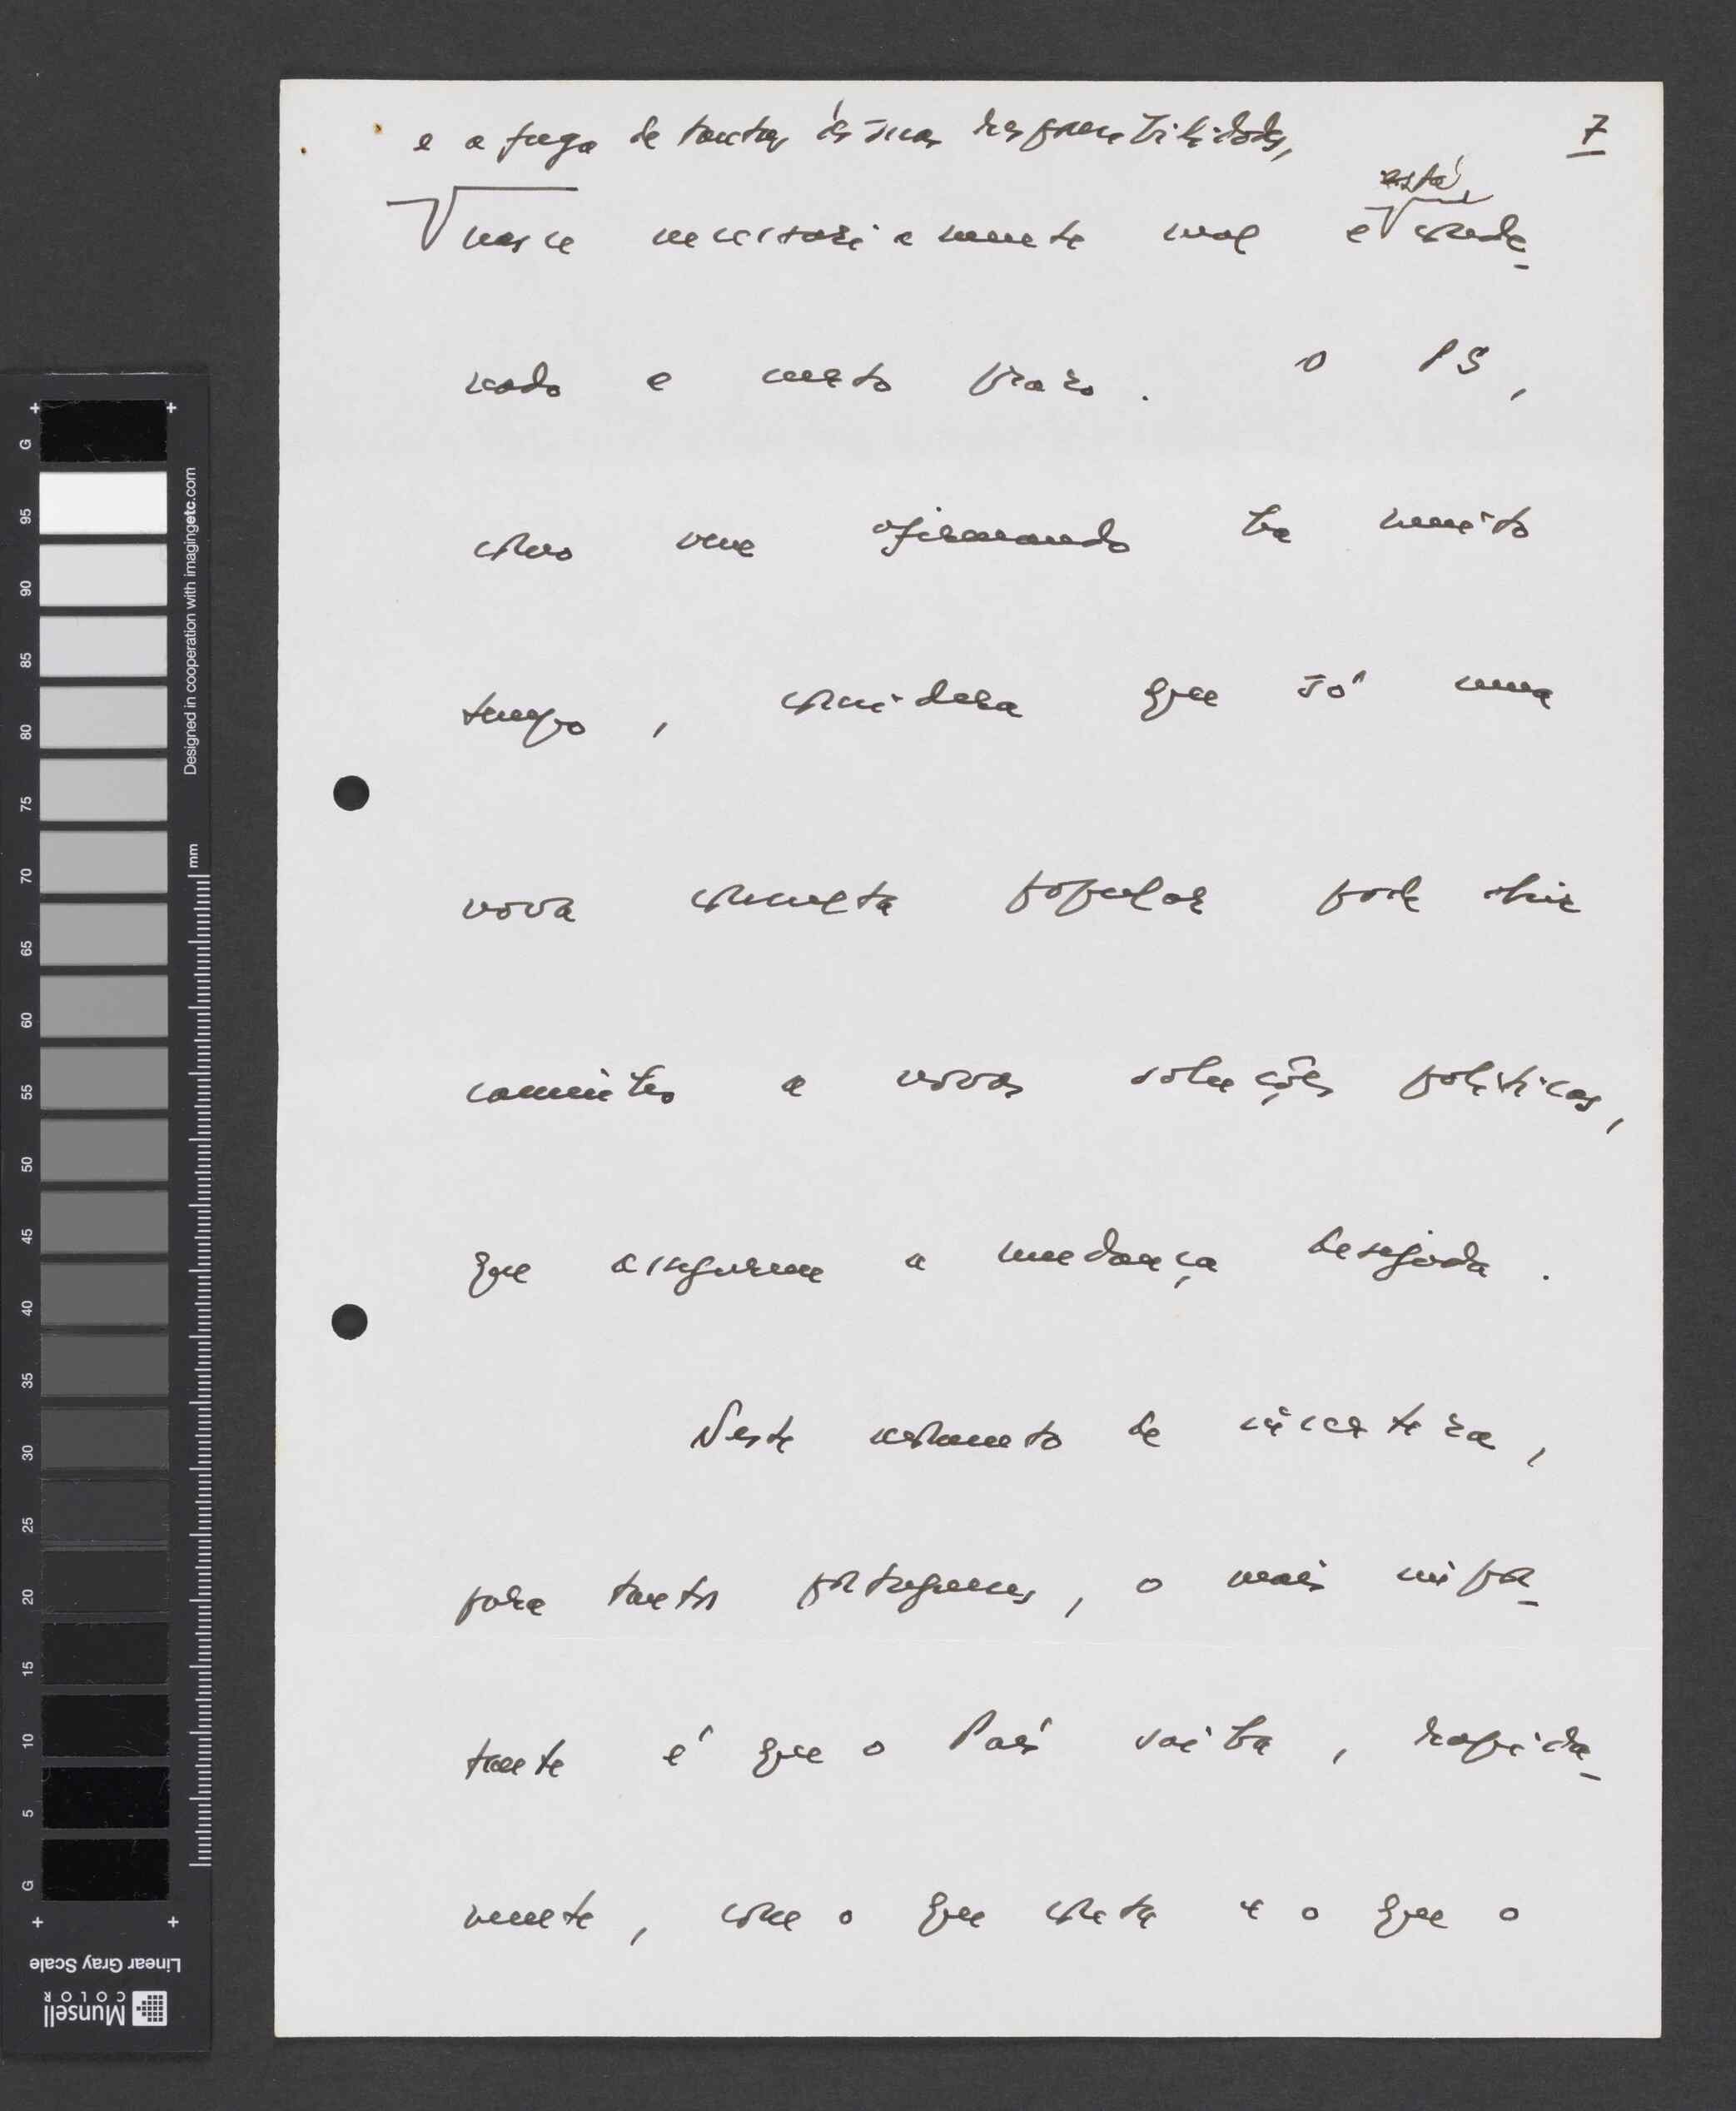 7
e a fuga de tantos às suas responsabilidades,
está
nasce necessariamente mal e conde-
nado a curto prazo. O PS,
como vem afirmando há muito
tempo, considera que só uma
nova consulta popular pode abrir
caminho a novas soluções políticas,
que assegurem a mudança desejada.
Neste momento de incerteza,
para tantos portugueses, o mais impor-
tante é que o País saiba, rapida-
mente, com o que conta e o que o
G
95
90
85
80
75
70
65
60
55
50
45
40
35
30
25
20
15
10
5
G
mm
Designed in cooperation with imagingetc.com
Linear Gray Scale
Munsell
COLOR